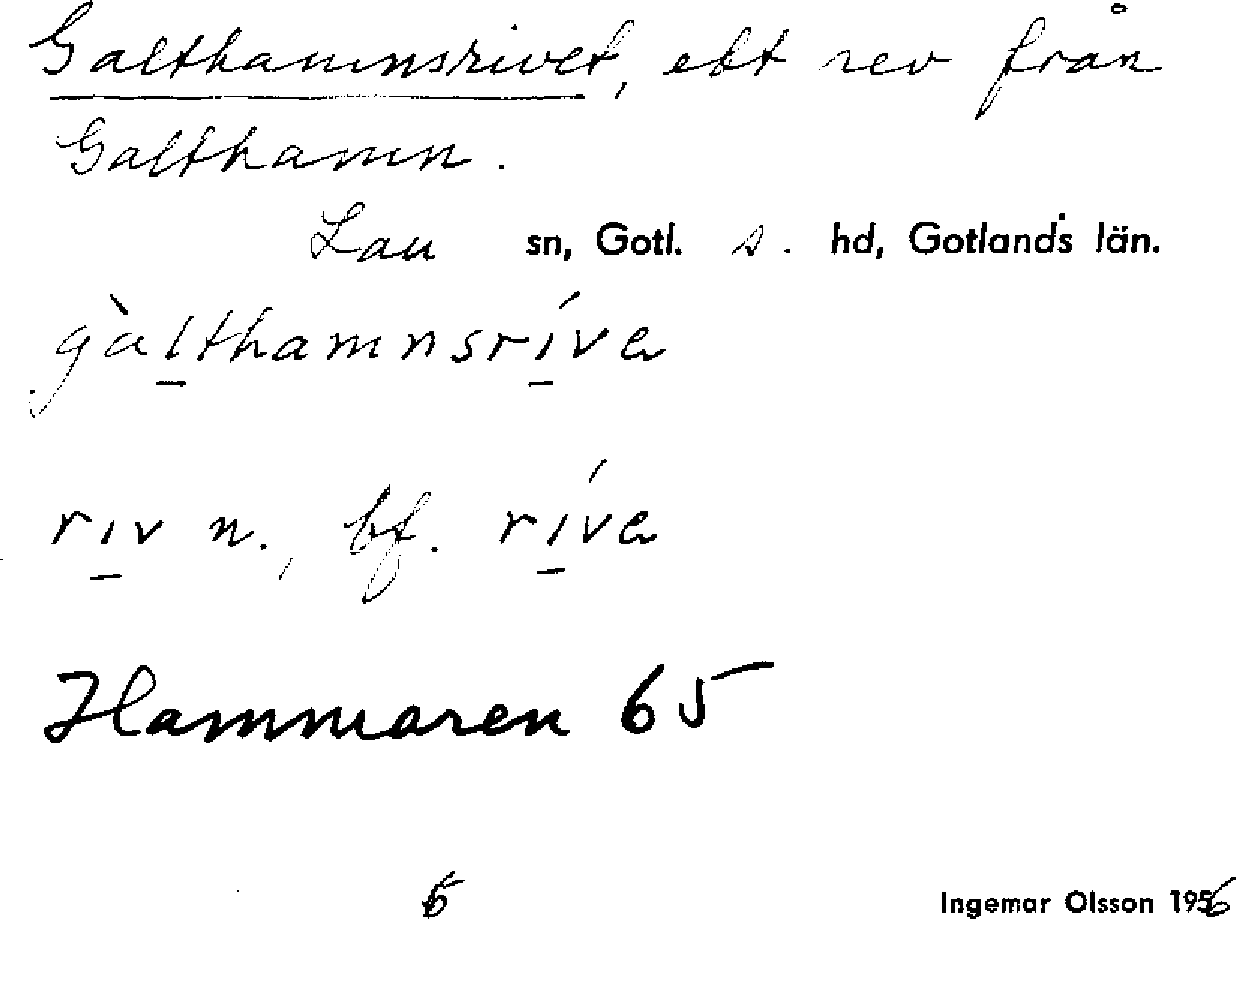 Galthamnsrivet, ett rev från
Galthamn.
Lau sn, Gotl. s. hd, Gotlands län.
gàlthamnsríva
riv n., bf. ríva
Hammaren 65
Ingemar Olsson 1956